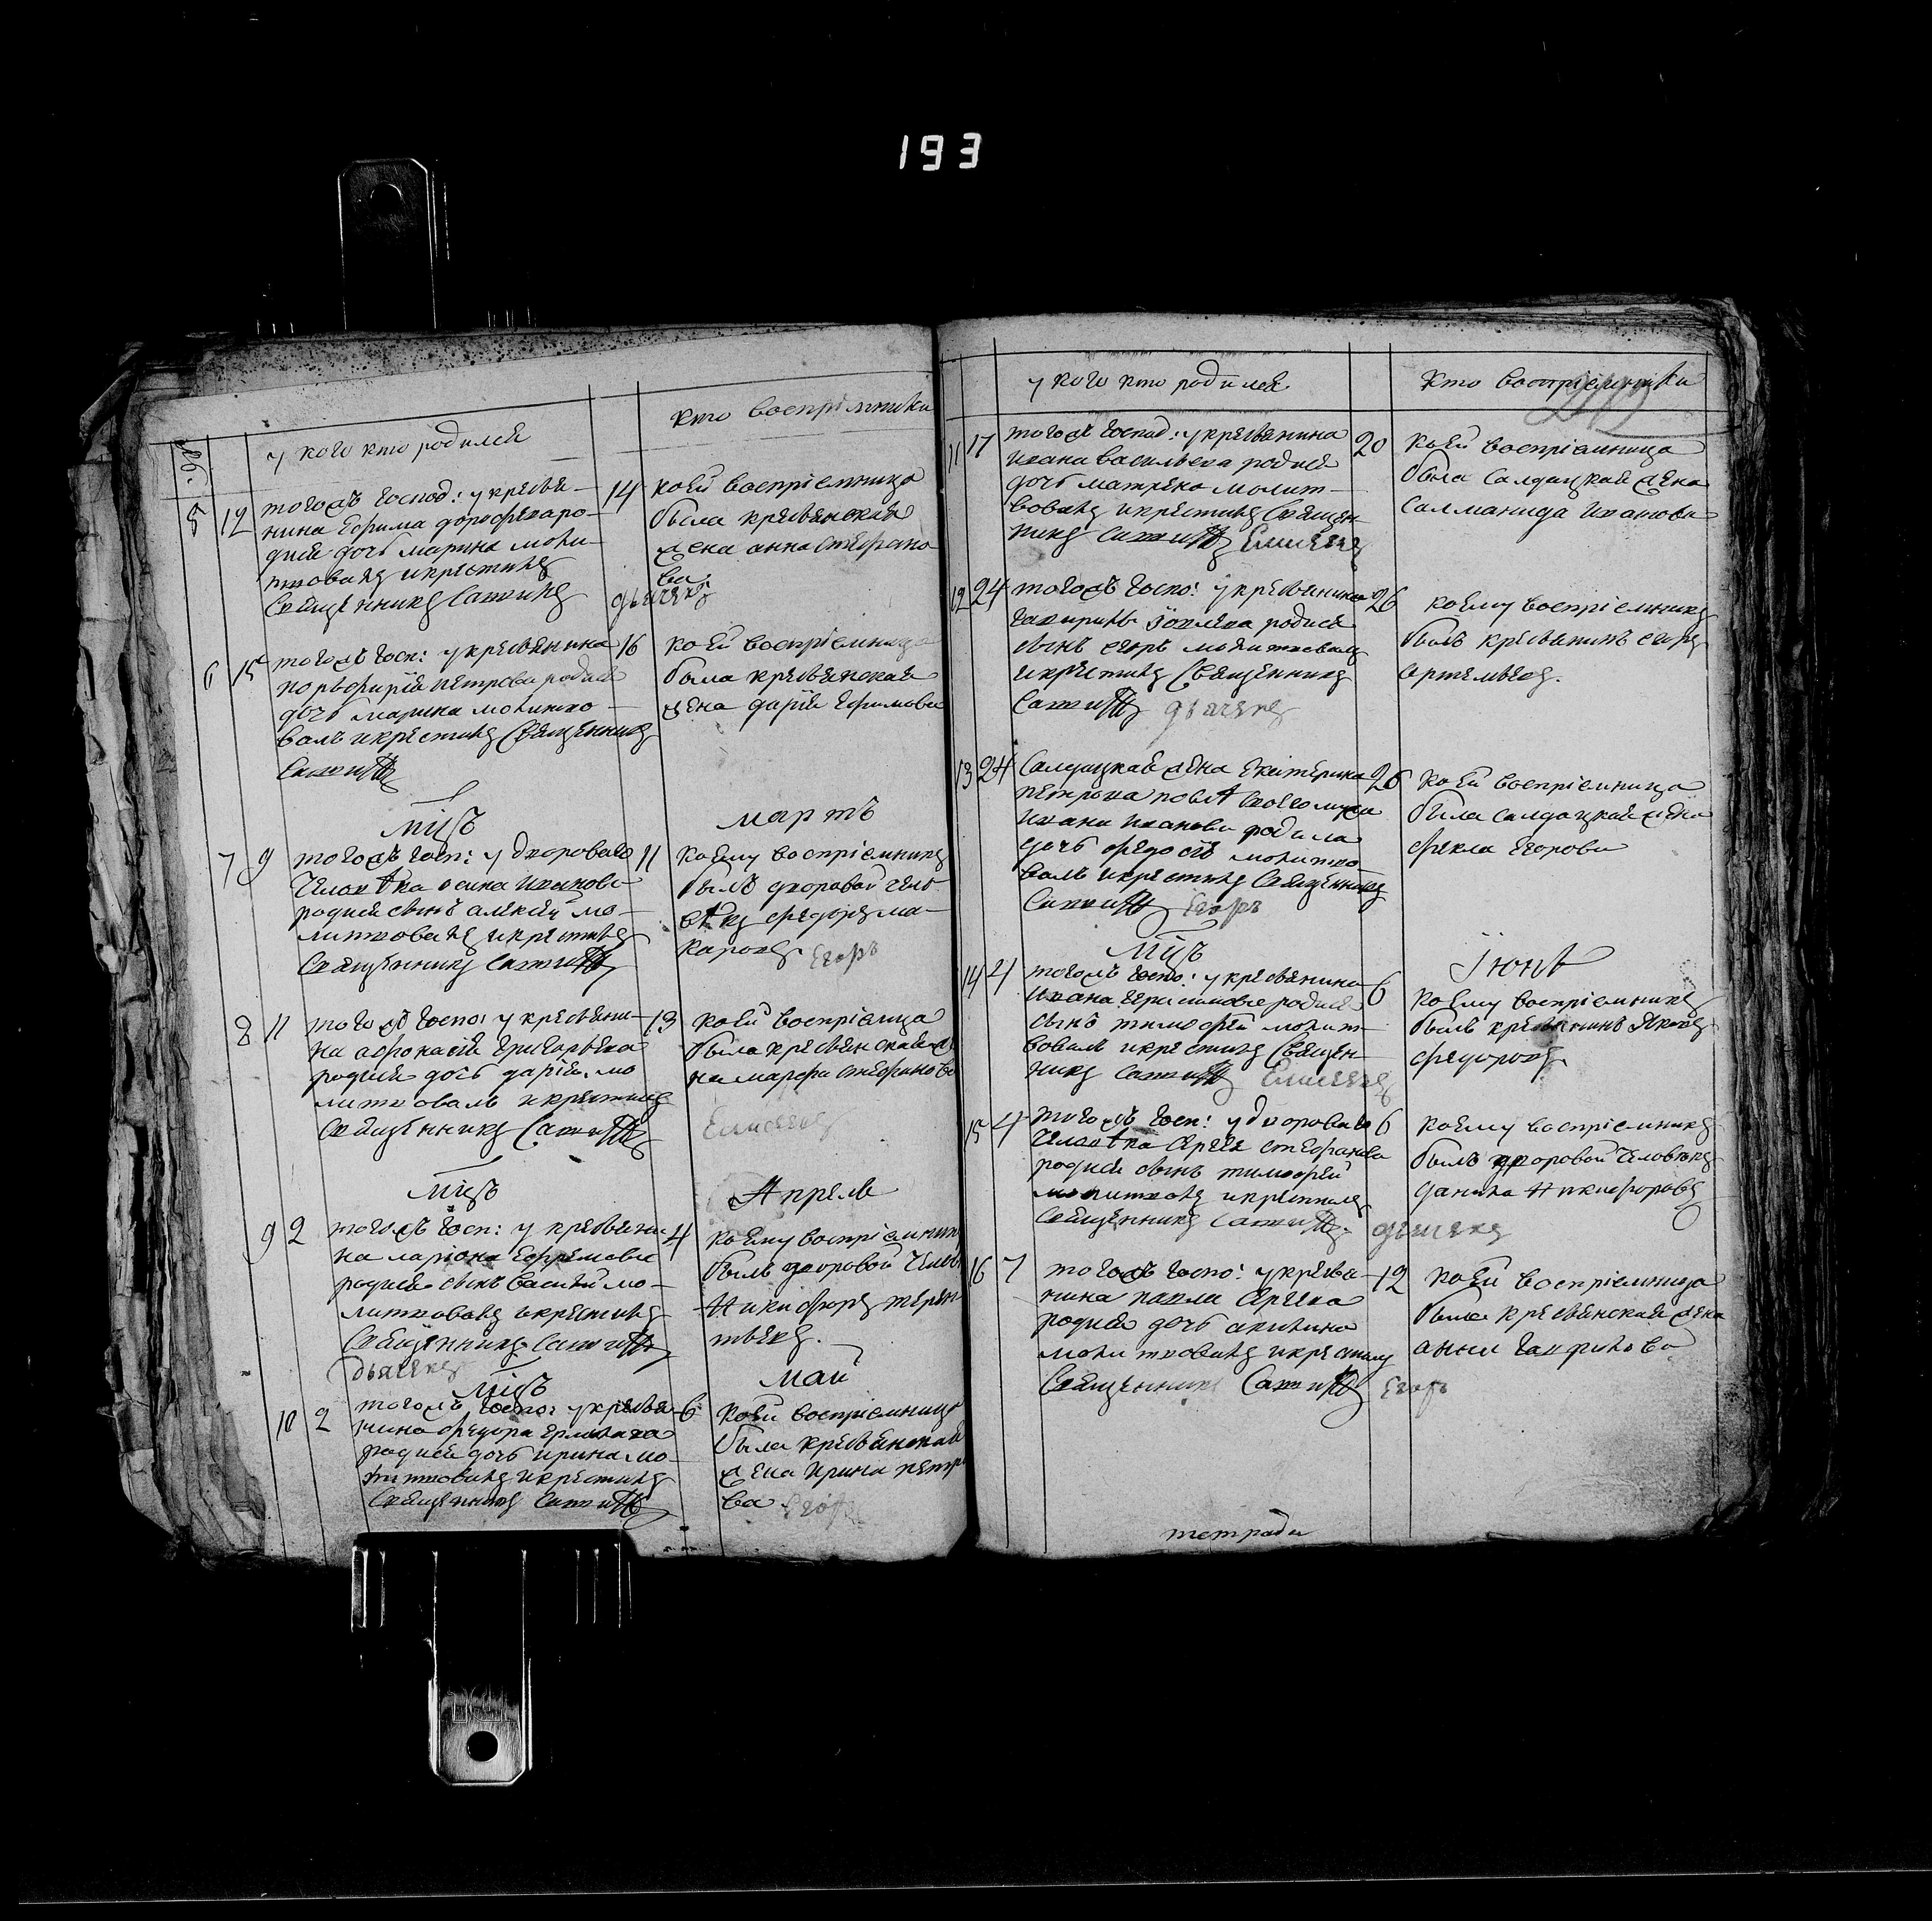 193
у кого кто родился
кто воспрiемники
5 12 тогожъ господ: у кресьяни-
нина Ефима дорофеева ро-
дися дочь марина моли-
твовалъ и крестилъ
Священникъ
14 коей воспрiемница
была кресьянская
жена анна Стефано
ва
дьячекъ
6 15 тогожъ госп: у кресьянина
порьфирiя петрова родися
дочь марина молитво-
валъ и крестилъ Священникъ
16 коей воспрiемница
была кресьянская
жена дарiя Ефимова
мцъ
мартъ
7 9 тогожъ госп: у двороваго
человѣка осипа Иванова
родися сынъ алексей мо-
литвовалъ и крестилъ
Священникъ
11 коему воспрiемникъ
былъ дворовой чело-
вѣкъ федоръ ма-
каровъ
Егоръ
8 11 тогожъ госпо: у кресьяни-
на афонасiя григорьева
родися дочь дарiя мо
литвовалъ и крестилъ
Священникъ
13 коей воспрiемница
была кресьянская же
на марфа Стефанова
Елисеевъ
мцъ
Апрель
9 2 тогожъ госп: у кресьяни-
на ларiона Ефремова
родися сынъ василей мо-
литвовалъ и крестилъ
Священникъ
дьячекъ
4 коему воспрiемникъ
былъ дворовой челов
Никифоръ терен
тьевъ.
мцъ
май
10 2 тогожъ госпо: у кресья-
нина федора
родися дочь ирина мо-
литвовалъ и крестилъ
Священникъ
6 коей воспрiемница
была кресьянская
жена Ирина петро
ва
Егоръ
у кого кто родился
кто воспрiемники
11 17 тогожъ господ: у кресьянина
ивана васильева родися
дочь матрена молит-
вовалъ и крестилъ Священ-
никъ Елисеевъ
20 коей воспрiемница
была салдацкая жена
Салманида Иванова
12 24 тогожъ госпо: у кресьянина
гаврилы родися
сынъ егоръ молитвовалъ
и крестилъ Священникъ
дьячекъ
26 коему воспрiемникъ
былъ кресьянинъ
артемьевъ.
13 24 Салдацкая жена Екатерина
петрова поslѣ своего мужа
Ивана Иванова родила
дочь федосiю молитво
валъ и крестилъ Священникъ
Егоръ
26 коей воспрiемница
была салдацкая жена
фекла Егорова
мцъ
Iюнь
14 4 тогожъ госпо: у кресьянина
Ивана герасимова родися
сынъ тимофей молит-
вовалъ и крестилъ Священ-
никъ Елисеевъ
6 коему воспрiемникъ
былъ кресьянинъ Яковъ
федоровъ
15 4 тогожъ госп: у двороваго
человѣка Сергея Стефанова
родися сынъ тимофей
молитвовалъ и крестилъ
Священникъ
6 коему воспрiемникъ
былъ дворовой человѣкъ
данила Никифоровъ
дьячекъ
16 7 тогожъ госпо: у кресья-
нина павла Сергеева
родися дочь акилина
молитвовалъ и крестилъ
Священникъ
12 коей воспрiемница
была кресьянская жена
анна гаврилова
Егоръ
тетради